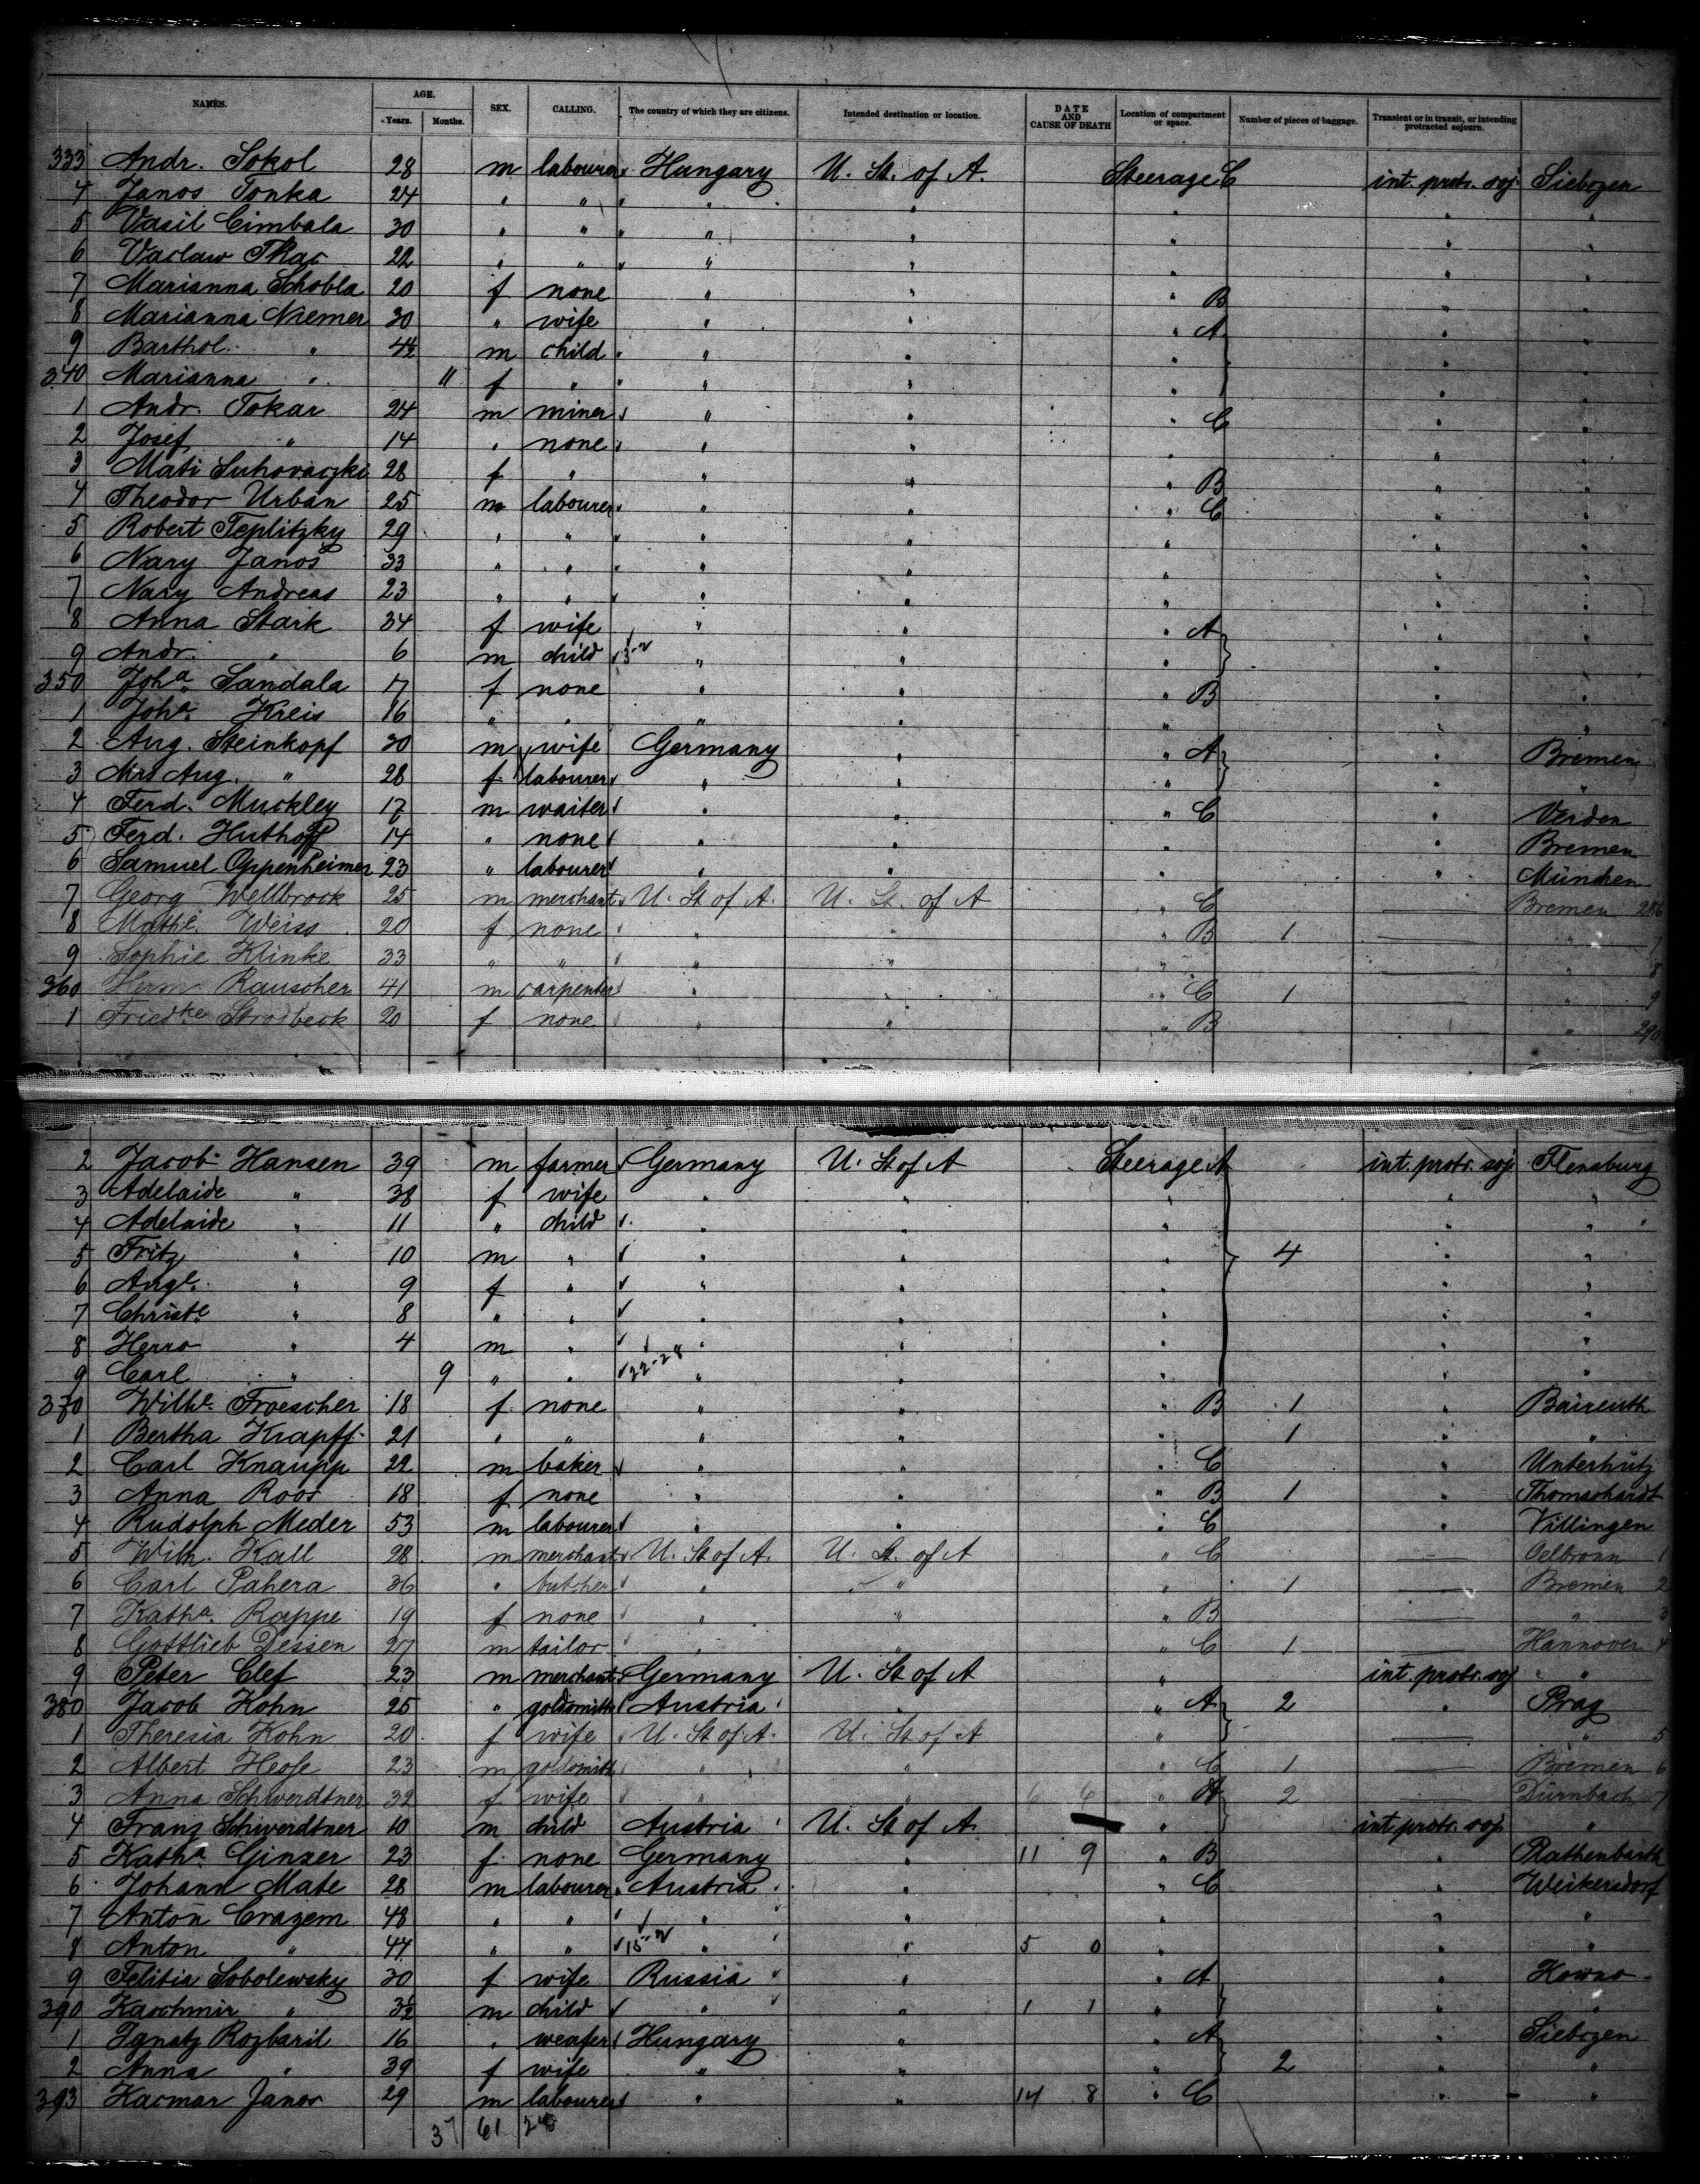 NAMES. AGE. Years. Months. SEX. CALLING. The country of which they are citizens. Intended destination or location. DATE AND CAUSE OF DEATH Location of compartment or space. Number of pieces of baggage. Transient or in transit, or intending protracted sojourn.
333 Andr. Sokol 28 m labourer Hungary U. St. of A. Steerage C int. protr. soj. Siebozen
4 Janos Tonka 24 " " " " " " "
5 Vasil Cimbala 30 " " " " " " "
6 Vaclaw Tkac 22 " " " " " " "
7 Marianna Schobla 20 f none " " " B " "
8 Marianna Niemer 30 " wife " " " A " "
9 Barthol. " 4½ m child " " " " "
340 Marianna " 11 f " " " " " "
1 Andr. Tokar 24 m miner " " " C " "
2 Josef " 14 " none " " " " "
3 Mati Suhovaczki 28 f " " " " B " "
4 Theodor Urban 25 m labourer " " " C " "
5 Robert Teplitzky 29 " " " " " " "
6 Nary Janos 33 " " " " " " "
7 Nary Andreas 23 " " " " " " "
8 Anna Stark 34 f wife " " " A " "
9 Andr. " 6 m child " " " " "
350 Joha Sandala 17 f none " " " B " "
1 Joha. Kreis 16 " " " " " " "
2 Aug. Steinkopf 30 m wife Germany " " A " Bremen
3 Mrs Aug. " 28 f labourer " " " " "
4 Ferd. Muckley 17 m waiter " " " C " Verden
5 Ferd. Huthoff 14 " none " " " " Bremen
6 Samuel Oppenheimer 23 " labourer " " " " München
7 Georg Wellbrock 25 m merchant U. St of A. U. St. of A " C Bremen 286
8 Mathe. Weiss 20 f none " " " B 1 " 7
9 Sophie Klinke 33 " " " " " " 8
360 Herm. Rauscher 41 m carpenter " " " C 1 " 9
1 Friedke Strodbeck 20 f none " " " B " 290
2 Jacob Hansen 39 m farmer Germany U. St of A Steerage A int. protr. soj. Flensburg
3 Adelaide " 38 f wife " " " " "
4 Adelaide " 11 " child " " " " "
5 Fritz " 10 m " " " " 4 " "
6 Auge. " 9 f " " " " " "
7 Christe " 8 " " " " " " "
8 Herro " 4 m " " " " " "
9 Carl " 9 " " 22-28 " " " " "
370 Wilhe. Froescher 18 f none " " " B 1 " Baireuth
1 Bertha Krapff 21 " " " " " 1 " "
2 Carl Knaupp 22 m baker " " " C " Unterhütz
3 Anna Roos 18 f none " " " B 1 " Thomashardt
4 Rudolph Meder 53 m labourer " " " C " Villingen
5 Wilh. Kall 28 m merchant U. St of A. U. St. of A " C Oelbronn 1
6 Carl Pahera 36 " butcher " " " 1 Bremen 2
7 Katha. Rappe 19 f none " " " B " 3
8 Gottlieb Dessen 27 m tailor " " " C 1 Hannover 4
9 Peter Clef 23 m merchant Germany U. St of A " int. protr. soj "
380 Jacob Kohn 25 " goldsmith Austria " " A 2 " Prag
1 Theresia Kohn 20 f wife U. St of A. U. St of A " " 5
2 Albert Hesse 23 m goldsmith " " " C 1 Bremen 6
3 Anna Schwerdtner 32 f wife " " 6 6 " A 2 Dürnbach 7
4 Franz Schwerdtner 10 m child Austria U. St of A. " int. protr. soj. "
5 Katha. Ginzer 23 f none Germany " 11 9 " B " Rathenbarth
6 Johann Mate 28 m labourer Austria " " C " Weikersdorf
7 Anton Crazem 48 " " " " " " "
8 Anton " 44 " " " " 5 0 " " "
9 Felitia Sobolewsky 30 f wife Russia " " A " Kowno
390 Kaschmir " 3½ m child " " 1 1 " " "
1 Ignatz Rozbaril 16 " weafer Hungary " " A " Siebozen
2 Anna " 39 f wife " " " 2 " "
393 Kacmar Janos 29 m labourer " " 14 8 " C " "
37 61 28